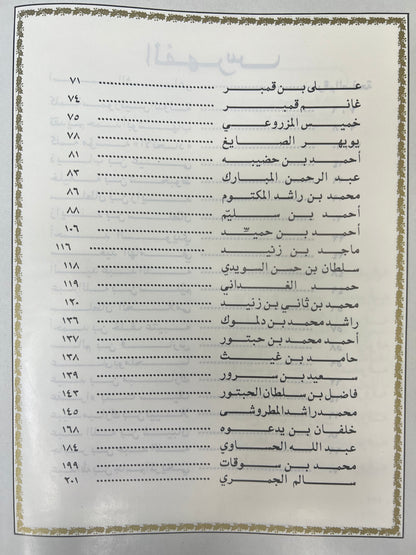 علي بن قمبر ........ ٧١
غانم قمبر ........ ٧٤
خميس المزروعي ........ ٧٥
يويهر الصايغ ........ ٧٨
أحمد بن حضيبه ........ ٨١
عبد الرحمن المبارك ........ ٨٣
محمد بن راشد المكتوم ........ ٨٦
أحمد بن سليّم ........ ٨٨
أحمد بن حميّد ........ ١٠٦
ماجد بن زنيد ........ ١١٦
سلطان بن حسن السويدي ........ ١١٨
حميد الغداني ........ ١١٩
محمد بن ثاني بن زنيد ........ ١٢٠
راشد محمد بن دلموك ........ ١٣٦
أحمد محمد بن حبتور ........ ١٣٧
حامد بن غيث ........ ١٣٨
سعيد بن سرور ........ ١٣٩
فاضل بن سلطان الحبتور ........ ١٤٣
محمد راشد المطروشى ........ ١٤٥
خلفان بن يدعوه ........ ١٦٨
عبد الله الحساوي ........ ١٨٤
محمد بن سوقات ........ ١٩٩
سالم الجمري ........ ٢٠١